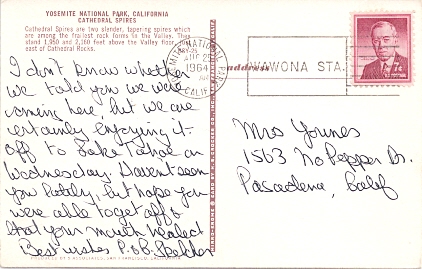 YOSEMITE NATIONAL PARK, CALIFORNIA
CATHEDRAL SPIRES
Cathedral Spires are two slender, tapering spires which
are among the frailest rock forms in the Valley. They
stand 1,950 and 2,160 feet above the Valley floor, just
east of Cathedral Rocks.
I don't know whether
we told you we were
coming here, but we are
certainly enjoying it-
off to Lake Tahoe on
Wednesday. Haven't seen
you lately, but hope you
were able to get off &
that your mouth healed
Best wishes P. & B.
NATIONAL PARK
1964
CALIF
address
WAWONA STA.
7¢
Mrs Younes
1563 No Pepper Dr.
Pasadena, Calif
SAN FRANCISCO, CALIFORNIA